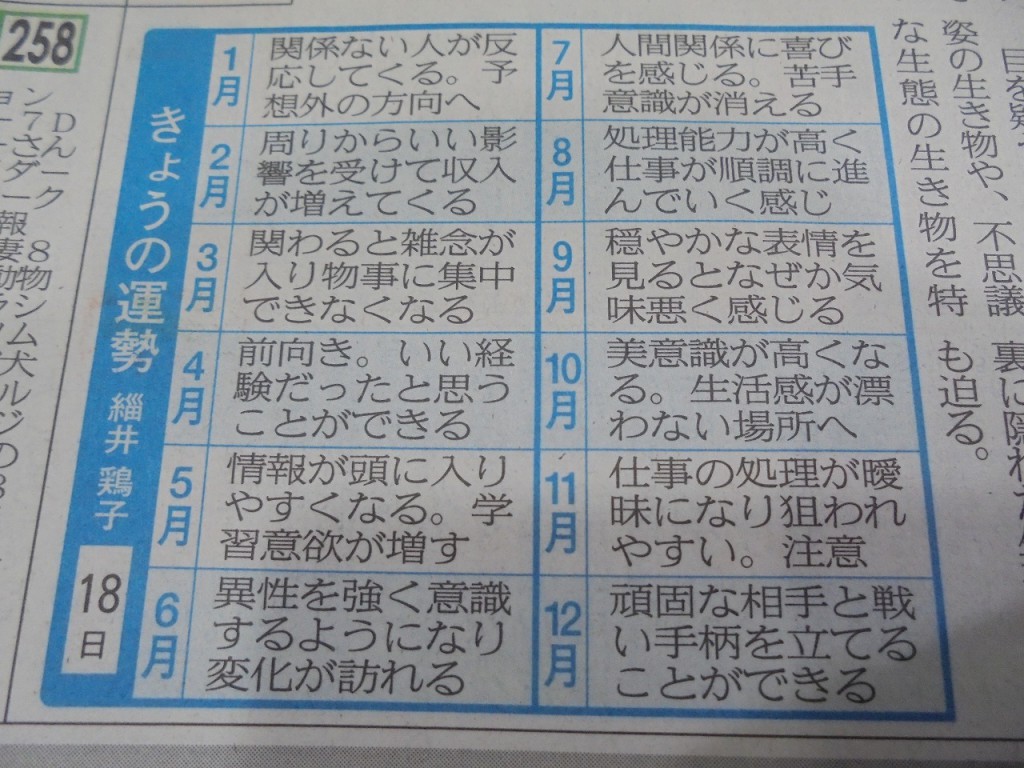 258
きょうの運勢
緇井 鶏子
18日
1月
関係ない人が反
応してくる。予
想外の方向へ
2月
周りからいい影
響を受けて収入
が増えてくる
3月
関わると雑念が
入り物事に集中
できなくなる
4月
前向き。いい経
験だったと思う
ことができる
5月
情報が頭に入り
やすくなる。学
習意欲が増す
6月
異性を強く意識
するようになり
変化が訪れる
7月
人間関係に喜び
を感じる。苦手
意識が消える
8月
処理能力が高く
仕事が順調に進
んでいく感じ
9月
穏やかな表情を
見るとなぜか気
味悪く感じる
10月
美意識が高くな
る。生活感が漂
わない場所へ
11月
仕事の処理が曖
昧になり狙われ
やすい。注意
12月
頑固な相手と戦
い手柄を立てる
ことができる
姿の生き物や、不思議
な生態の生き物を特
裏に隠れ
も迫る。